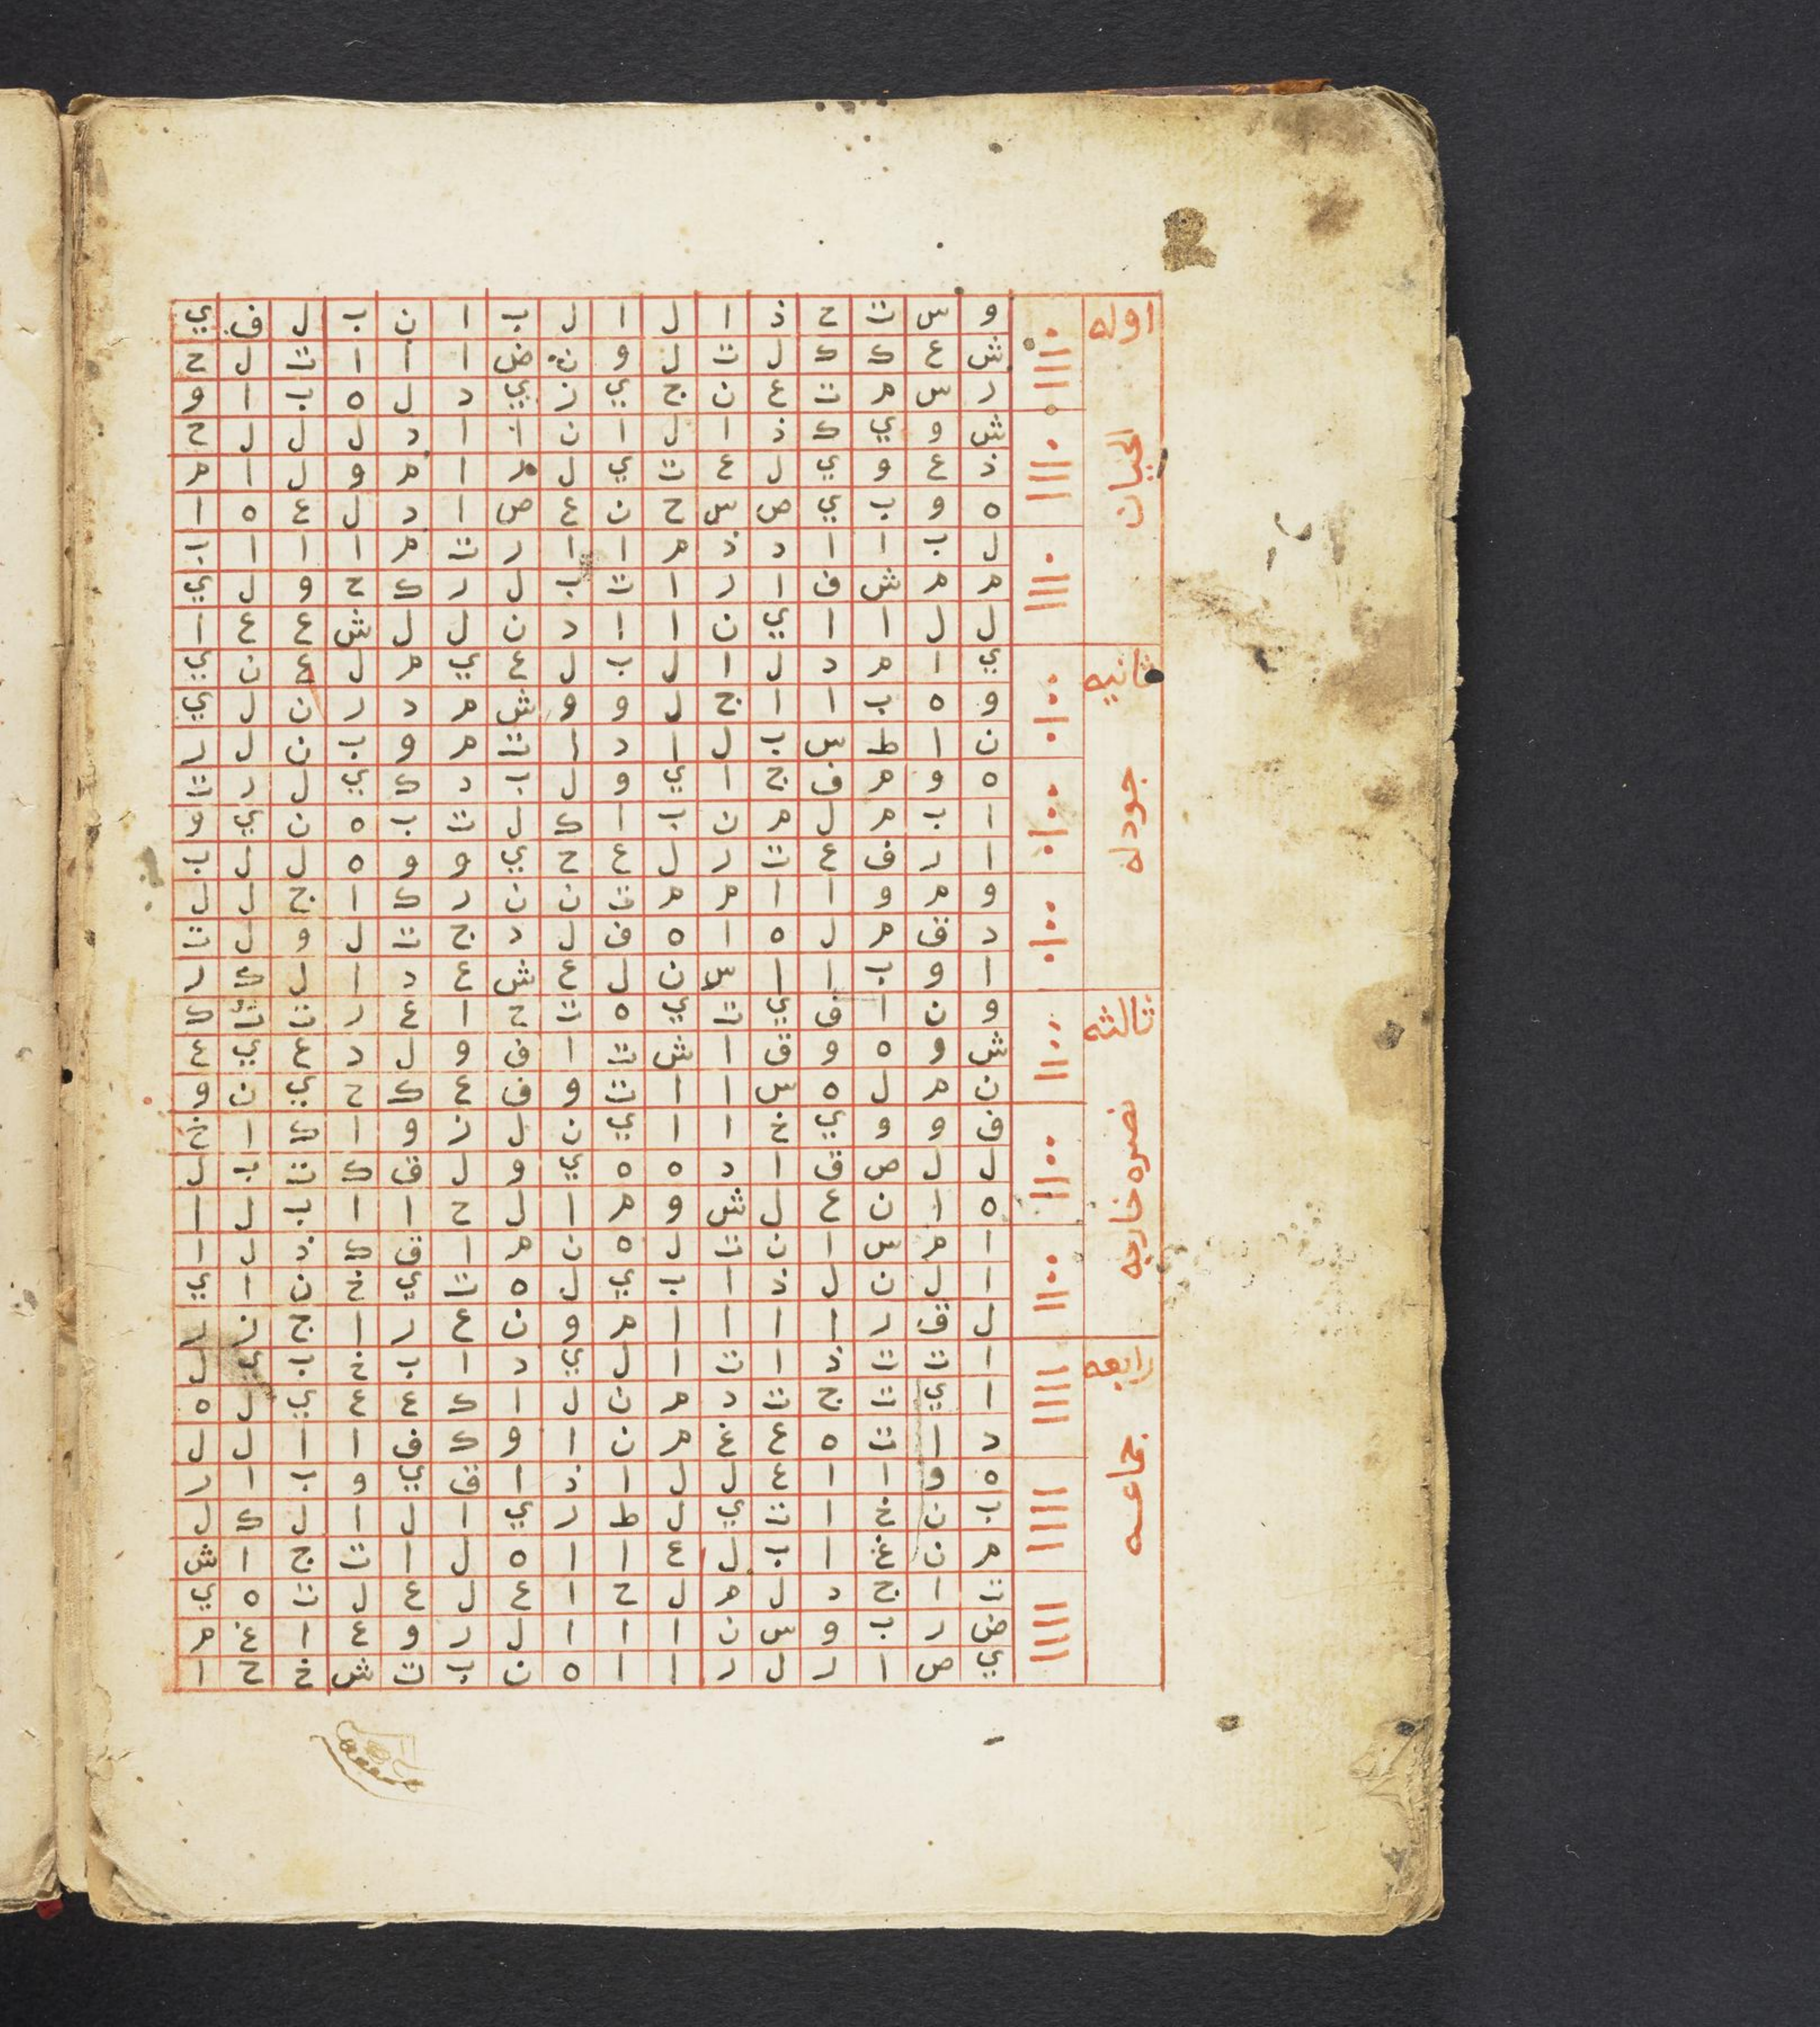 اوله
الحيان
و س ت ح ذ ا ل ا ل ب ا ن ب ل ف ي
ش ع ك ك ل ت ل و ن ض ا ا ا ت ل ح
ر س م ت ع ن ج ي ز ي د ل ه ب ا و
ش و ي ك ذ ا ل ا ن ا ا د ل ل ل ح
ذ ع و ي ل ع ت ي ل م ا م و ل ا م
ه و ب ي ص س ح ن ع ص ا د ل ع ه ا
ل ب ا ا د ذ م ا ا ر ت م ا ا ا ب
م م ش ف ا ر ا ت ب ل ر ك ح و ل ي
ل ل ا ا ي ن ا ا د ن ل ل ش ع ع ا
ثانيه
جودله
ي ا م د ل ا ل ب ل ع ي م ل ع ن ي
و ه ب ا ا ج ل و و ش م د ر ن ل ي
ن ا ط س ب ل ا د ا ت م و ب ن ل ر
ه و م ف ج ا ي و ل ب د ك ي ل ر ت
ا ب م ل م ن ب ا ك ل ت ب ه ن ي و
ا ر ف ع ت ر ل ع ح ي و و ه ل ل ب
و م و ا ا م م ت ن ن ر ك ا ج ل ل
د ق م ل ه ا ه ف ل د ج ت ل و ل ت
ا و ب ا ا س ن ل ع ش ع د ا ل ك ر
ثالثه
نصره خارجه
و ن ا ف ي ت ي ه ت ح ا ع ر ت ت ك
ش و ه و ق ا ش ت ا ف و ل د ع ي ع
ن م ل ه س ا ا ت و ف ع ك ح ي ن و
ف و و ي خ ا ا ي ن ل ز و ا ك ا خ
ل ل ص ق ا د ه ه ي و ل ق ك ت ب ل
ه ا ن ع ل ش و م ا ل ح ا ا ب ل ا
ا م س ا ن ت ل ه ن م ا ق ك ذ ل ا
ا ل ن ل ذ ا ب ي ل ه ت ي خ ن ا ي
ل ق ر ا ا ا ا م و ن ع ر ا ج ن ر
رابعه
جماعه
ا ت ت ذ ا ت ا ل ي د ا ب خ ب ي ل
ا ي ت ج ت د م ن ل ا ك ع ع ي ل ه
د ا ت ه ع غ م ن ا و ك ف ا ا ل ل
ه و ا ا ع ل ل ا ذ ا ق ي و ب ا ر
ب ن خ ا ت ي ل ط ر ي ا ل ا ل ك ل
م ن غ ا ب ل ع ا ا ه ل ا ت ج ا ش
ت ا ج د ل م ل ح ا ع ل ع ل ت ه ي
ض ر ب و س ن ا ا ا ل ر و ع ا غ م
ي ص ا ر ل ر ا ا ه ن ب ت ش خ ح ا